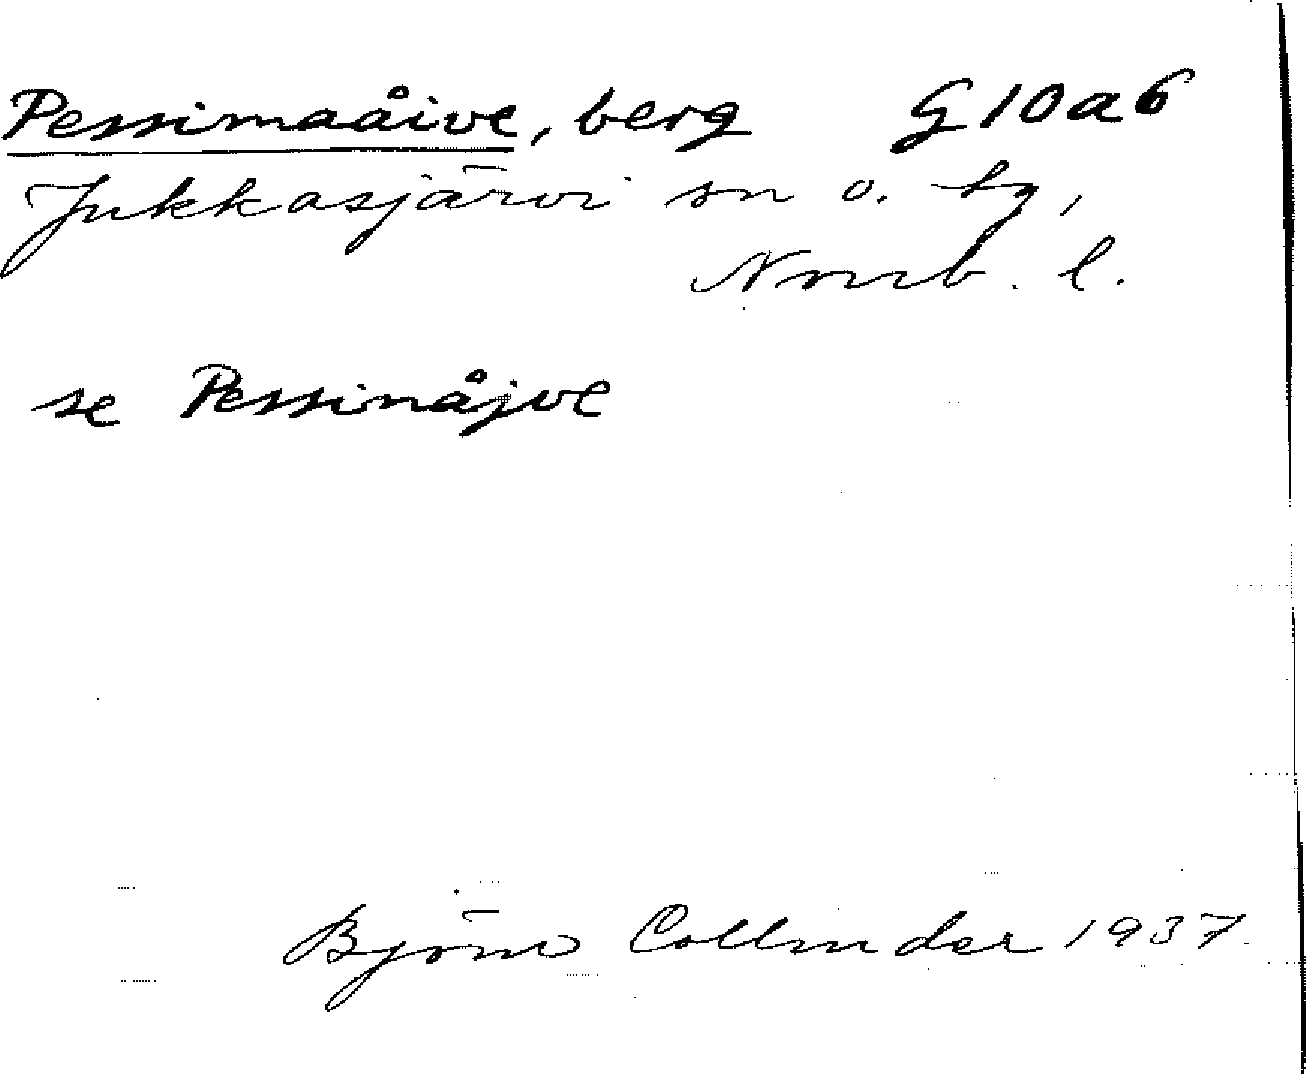 Pessimaåive, berg G10a6
Jukkasjärvi sn o. tg,
Norrb. l.
se Pessinåjve
Björn Collinder 1937.